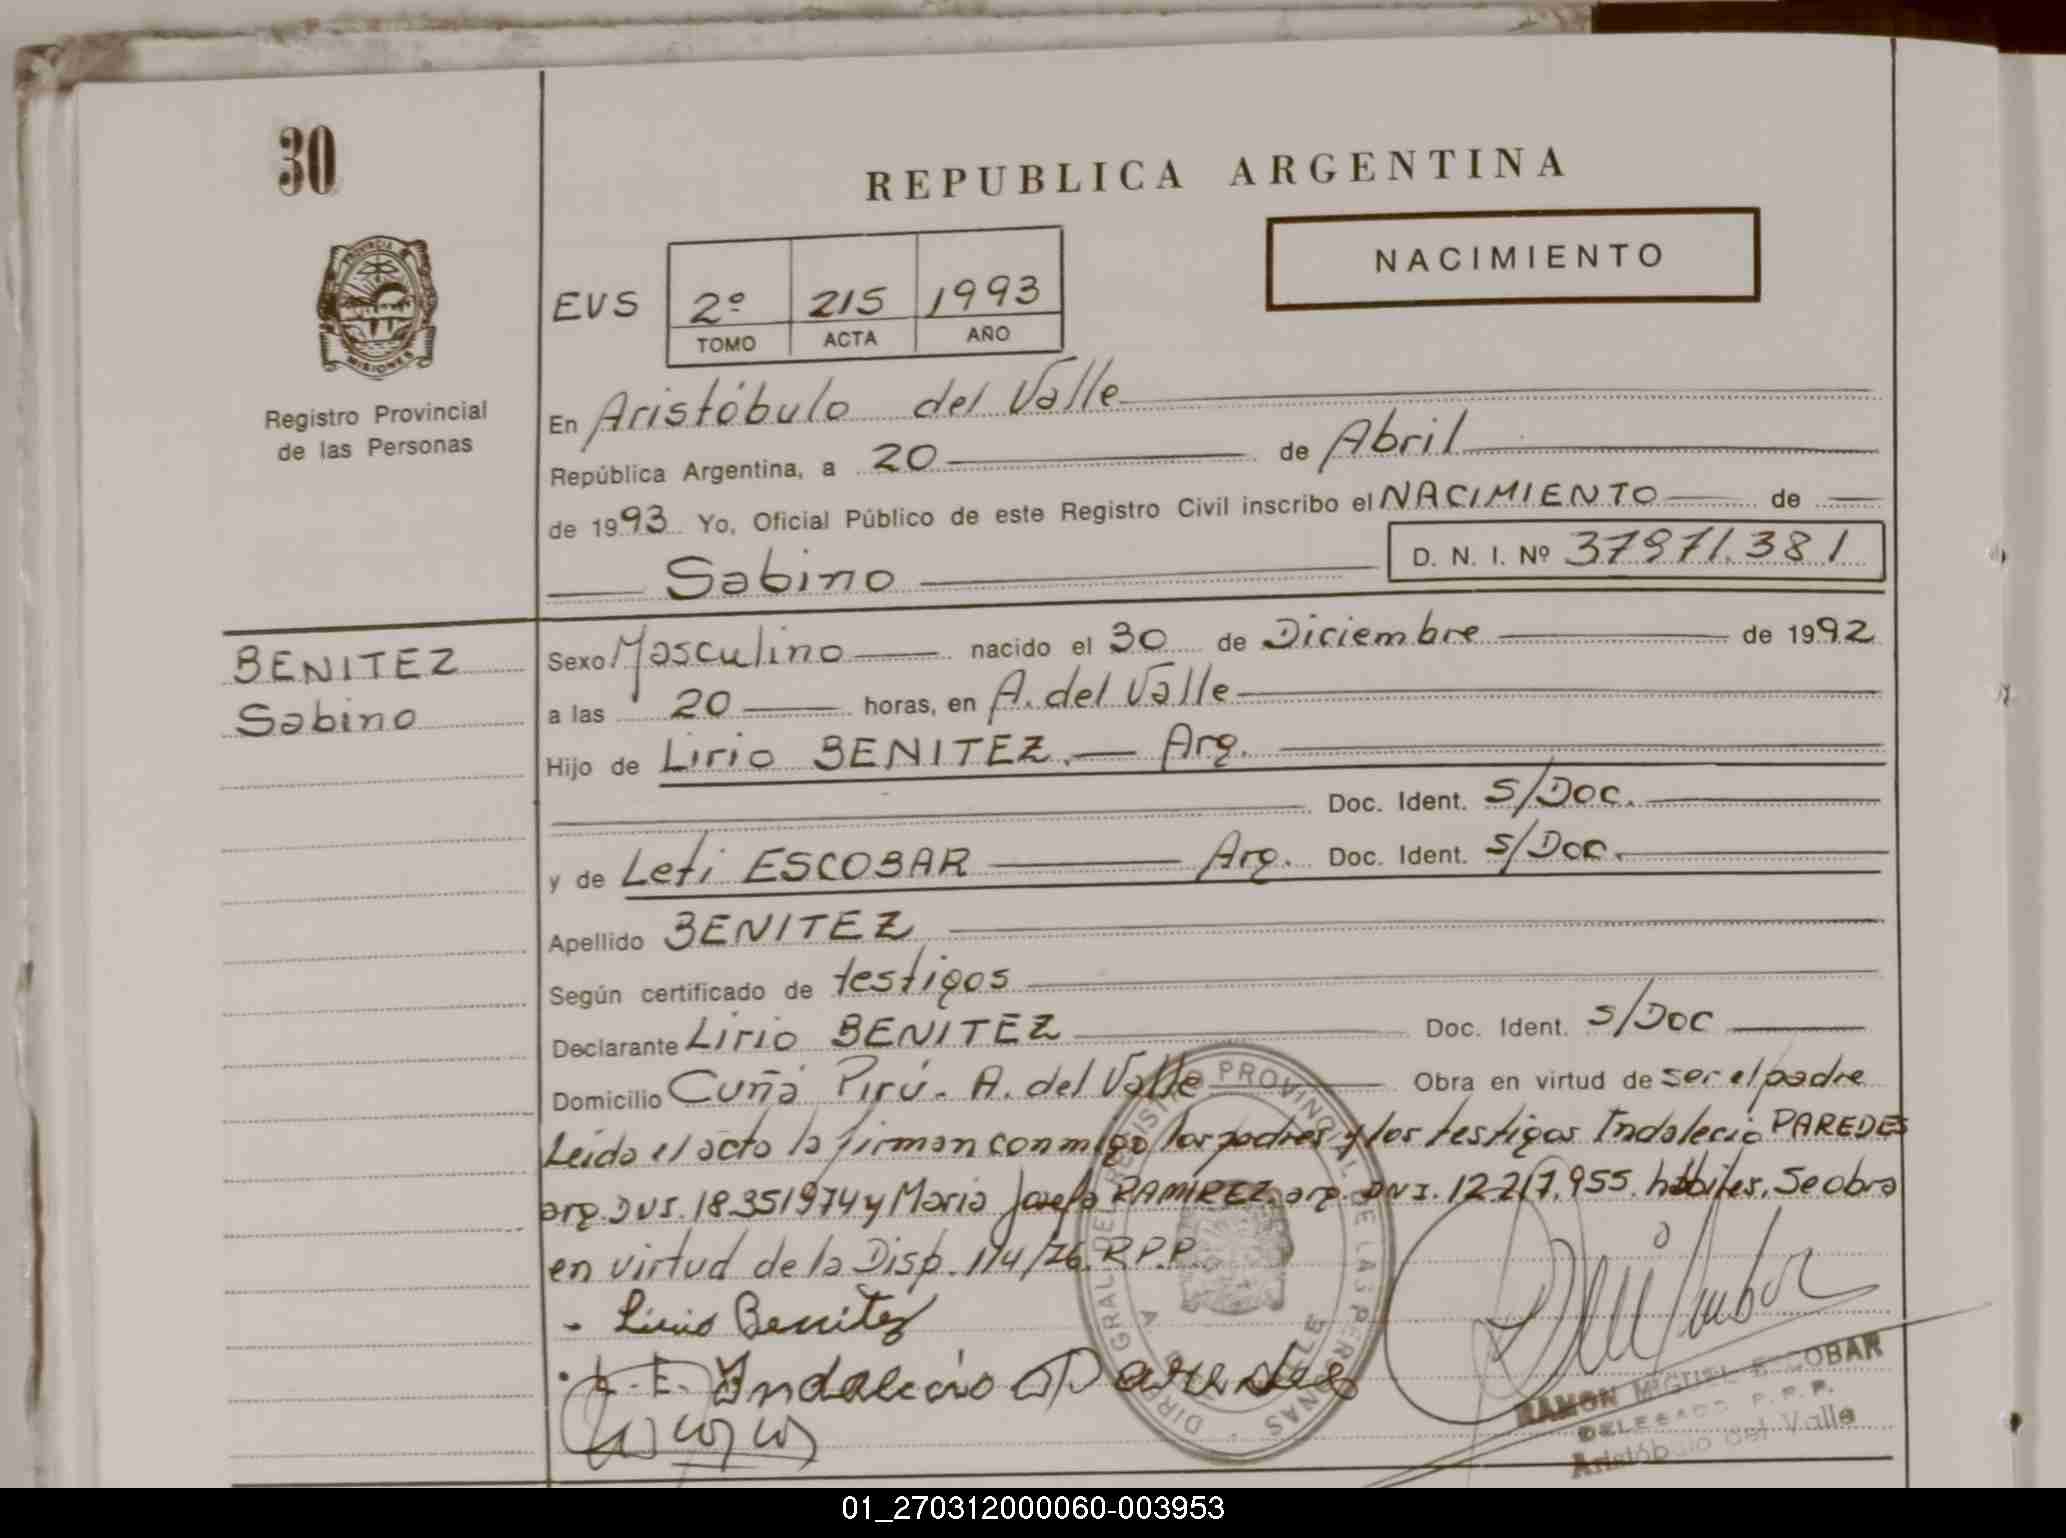 30
REPUBLICA ARGENTINA
NACIMIENTO
PROVINCIA
MISIONES
Registro Provincial
de las Personas
EVS 2º 215 1993
TOMO ACTA AÑO
En Aristóbulo del Valle
República Argentina, a 20 de Abril
de 1993 Yo, Oficial Público de este Registro Civil inscribo el NACIMIENTO de
Sabino D. N. I. Nº 37971.381
BENITEZ
Sabino
Sexo Masculino nacido el 30 de Diciembre de 1992
a las 20 horas, en A. del Valle
Hijo de Lirio BENITEZ. Arg.
Doc. Ident. S/Doc.
y de Leti ESCOBAR Arg. Doc. Ident. S/Doc.
Apellido BENITEZ
Según certificado de testigos
Declarante Lirio BENITEZ Doc. Ident. S/Doc
Domicilio Cuñá Pirú. A. del Valle Obra en virtud de ser el padre
Leida el acta la firman conmigo los padres y los testigos Indalecio PAREDES
arg. DNI. 18.351974 y Maria Josefa RAMIREZ, arg. DNI. 12.217.955. hábiles. Se obra
en virtud de la Disp. 114/76. R.P.P.
- Lirio Benitez
. L. E. Indalecio Paredes
DIR. GRAL DEL REGISTRO PROVINCIAL DE LAS PERSONAS
A. D. VALLE
RAMON MIGUEL ESCOBAR
DELEGADO R.P.P.
Aristóbulo del Valle
01_270312000060-003953